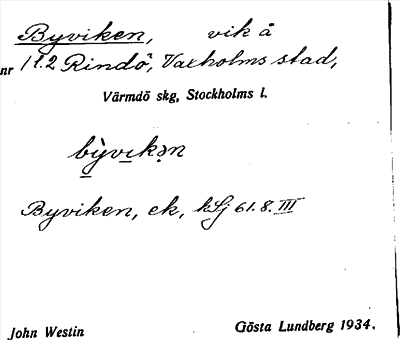 Byviken, vik å
nr 1 l. 2 Rindö, Vaxholms stad,
Värmdö skg, Stockholms l.
bỳvıkə̣n
Byviken, ek, kSj 61.8.III
John Westin Gösta Lundberg 1934.